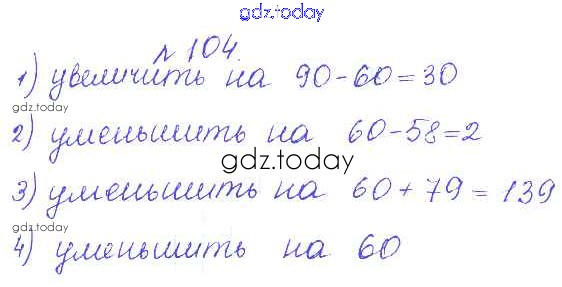 gdz.today
№ 104.
1) увеличить на 90-60=30
gdz.today
2) уменьшить на 60-58=2
gdz.today
3) уменьшить на 60+79=139
gdz.today
4) уменьшить на 60